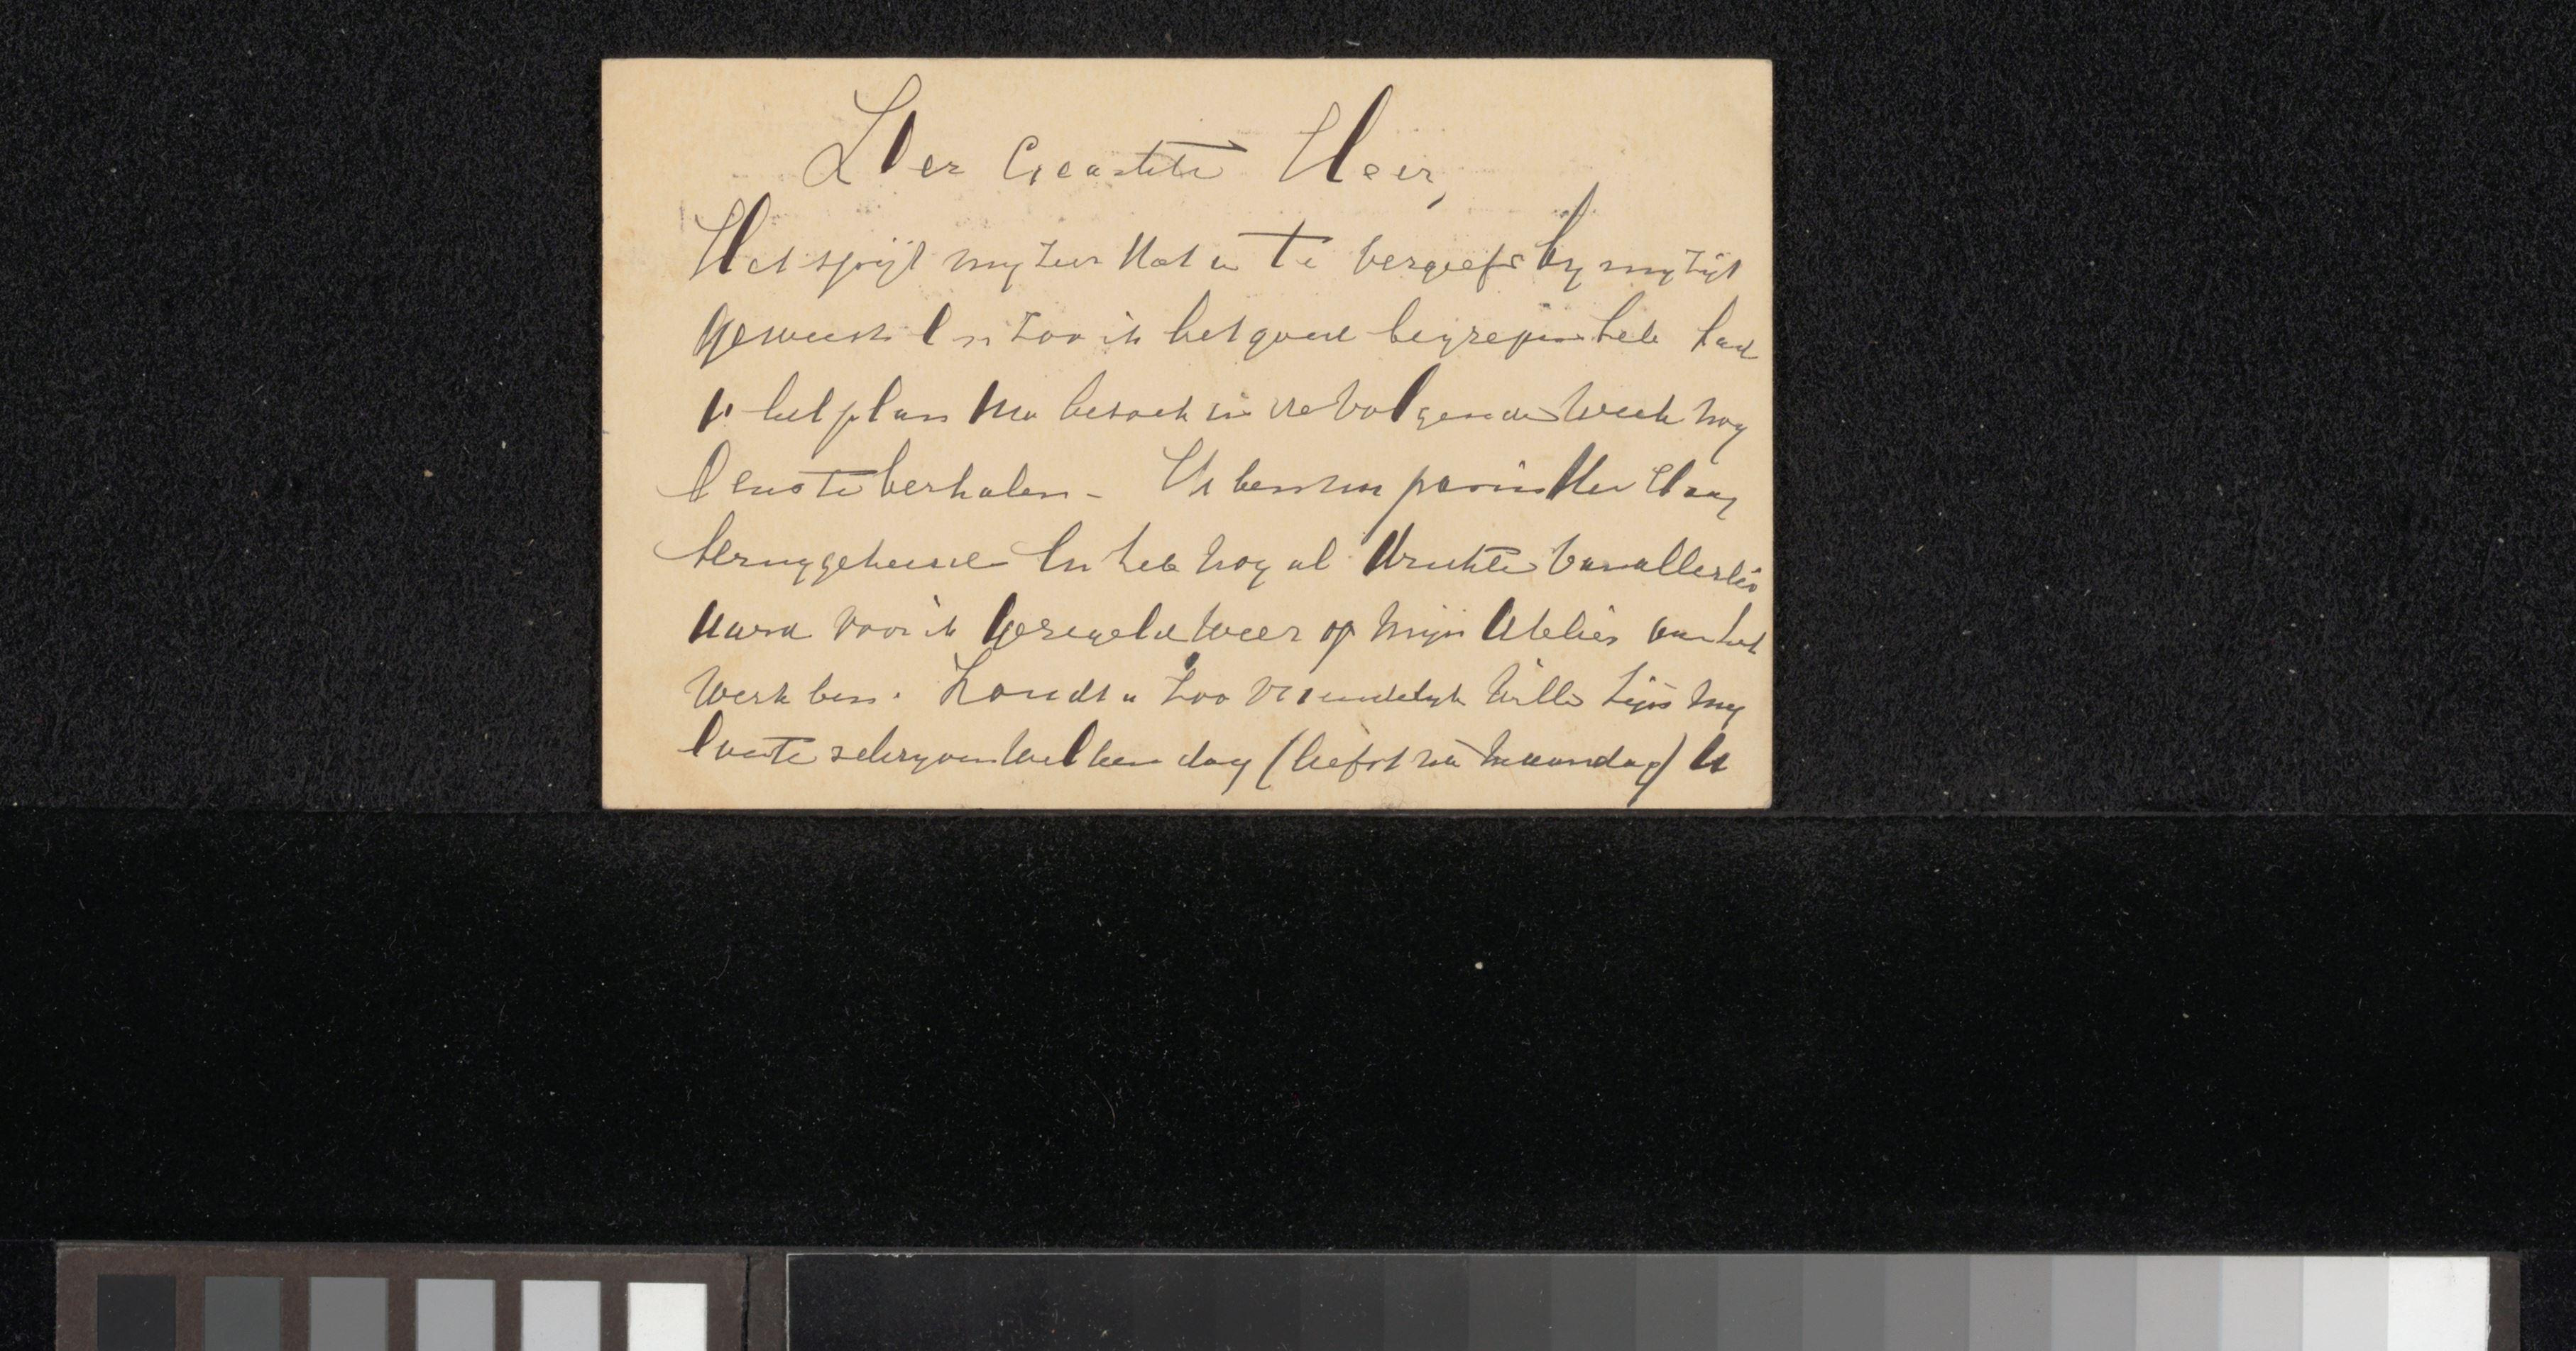 Zeer Geachte Heer,
Het spijt my zeer dat u te vergeefs by my zijt
geweest En zoo ik het goed begrepen heb had
u het plan Uw bezoek in de volgende week nog
eens te herhalen - Ik ben nu pas in Den Haag
teruggekeerd En heb nog al drukte van allerlei
aard voor ik geregeld weer op mijn Atelier aan het
werk ben. Zoudt u zoo vriendelyk willen zijn my
even te schryven welken dag (liefst na maandag) U